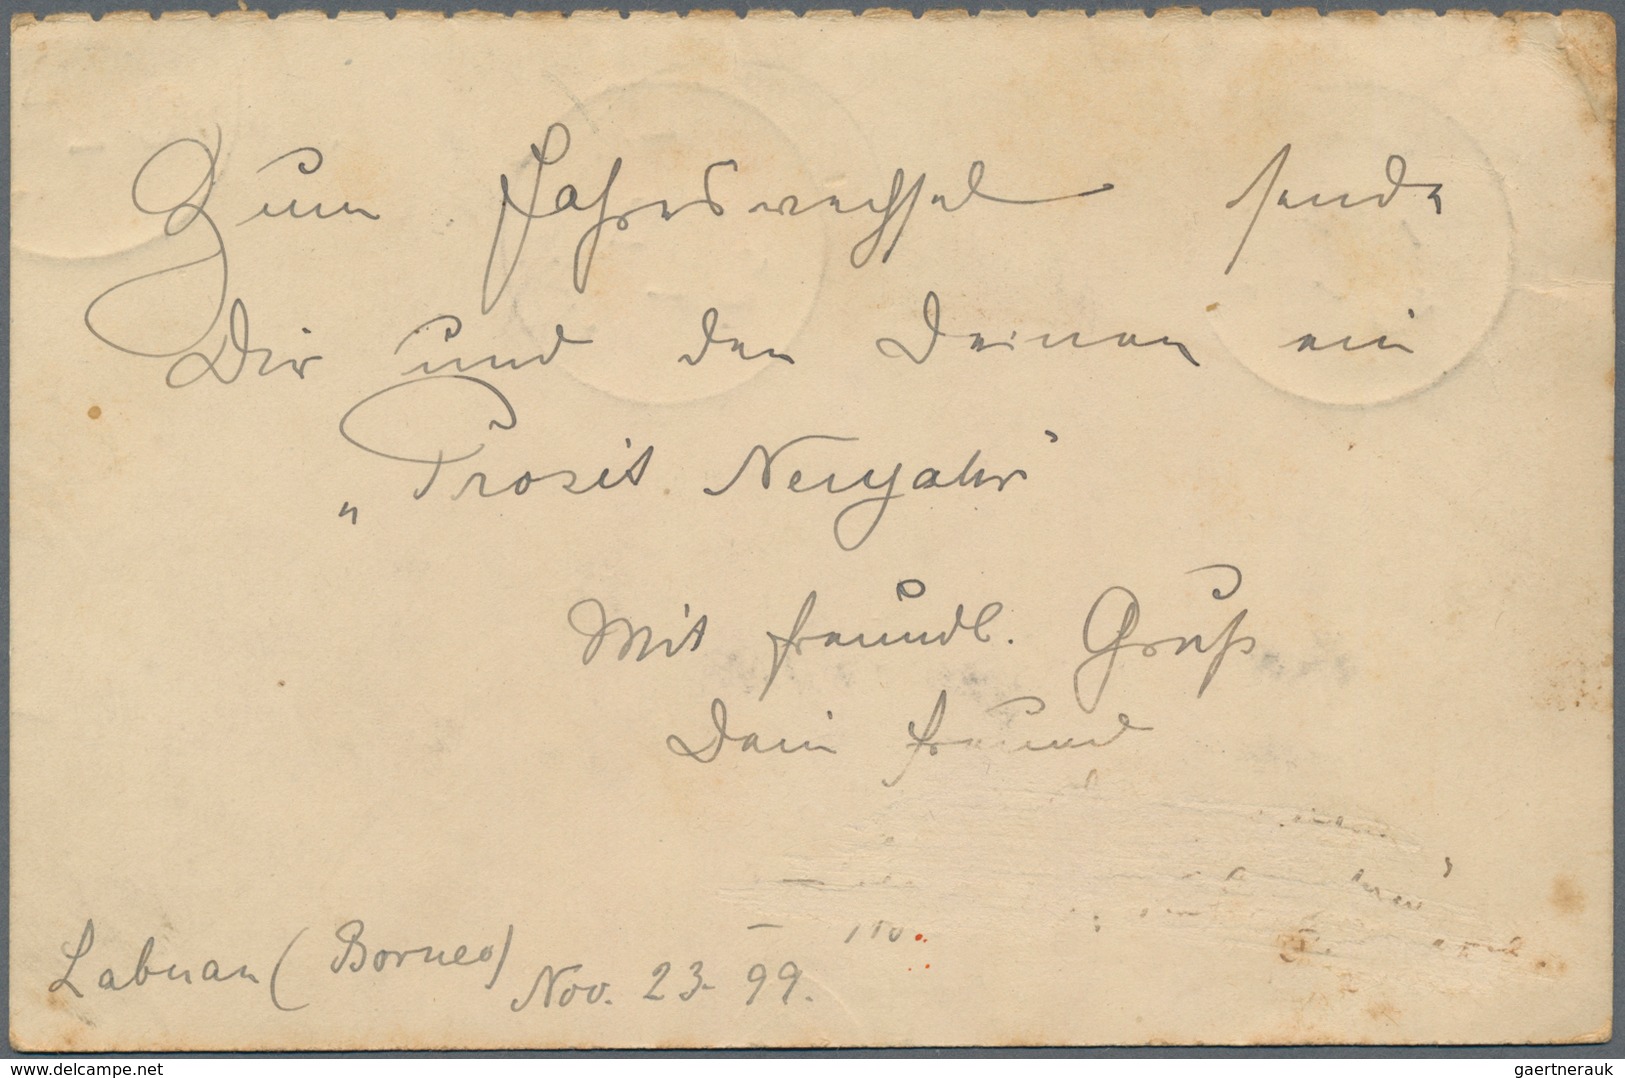 Zum Jahreswechsel sende
Dir und den Deinen ein
„Prosit Neujahr“
Mit freundl. Gruß
Dein Freund
Labuan (Borneo) Nov. 23. 99.
delcampe.net
gaertnerauk